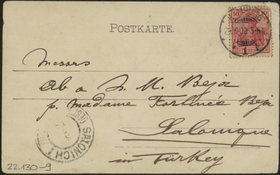 POSTKARTE.
Messrs
Ab & S. M. Beja
p. Madame Fortinée Beja
Salonique
in Turkey
SALONICH 1
22.130-9